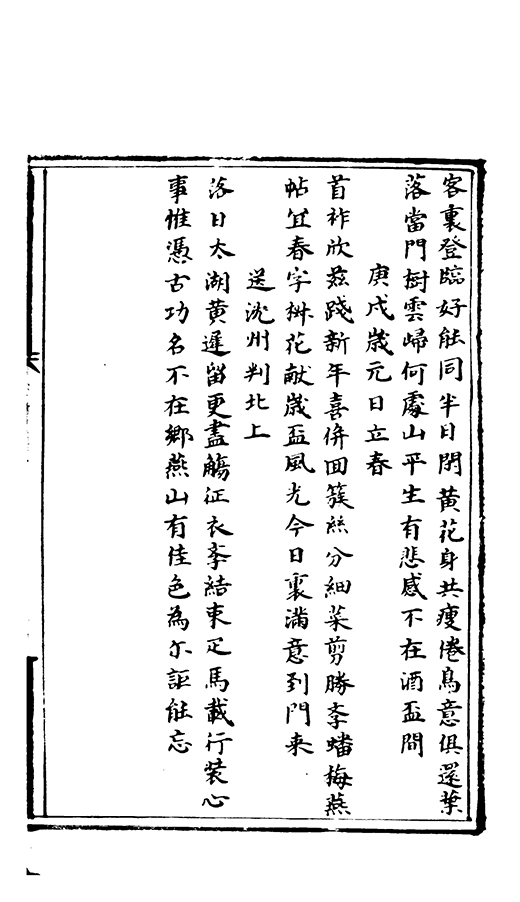 客裏登臨好能同半日閒黄花身共瘦倦鳥意俱還葉
落當門樹雲歸何處山平生有悲感不在酒盃間
庚戌歲元日立春
首祚欣茲踐新年喜併回簇絲分細菜剪勝斈蟠梅燕
帖宜春字椒花献歲盃風光今日裏滿意到門来
送沈州判北上
落日太湖黄遲留更盡觴征衣斈結束疋馬載行装心
事惟憑古功名不在鄉燕山有佳色為尔詎能忘